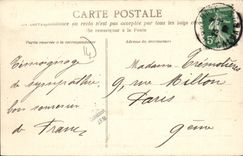 CARTE POSTALE
La correspondance au recto n'est pas acceptée par tous les pays
Se renseigner à la Poste
Partie réservée à la correspondance
Adresse du destinataire
4
Témoignage
de sympathie
bon souvenir
de France
Madame Trémolières
9, rue Milton
Paris
9ème